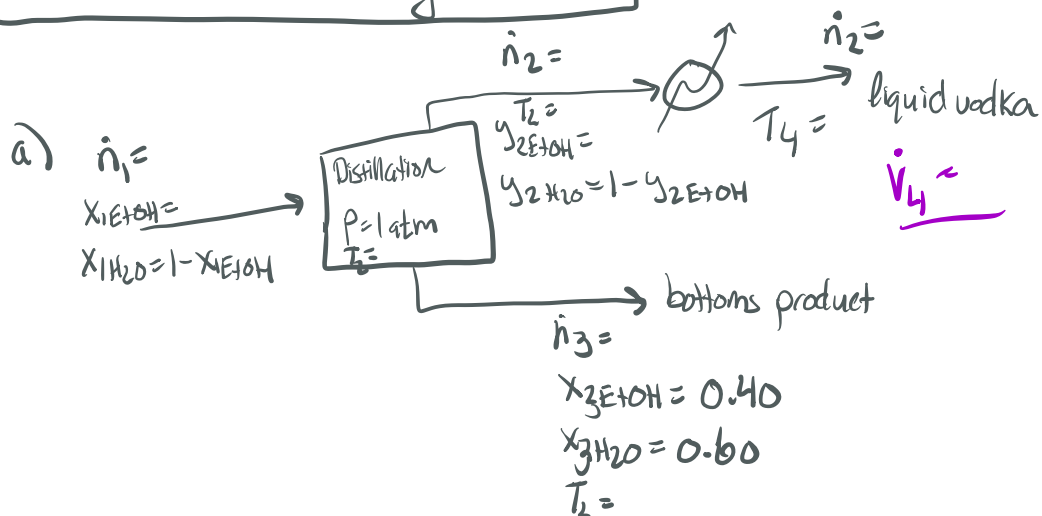 a)
ṅ₁=
x₁EtOH=
x₁H₂O=1-x₁EtOH
Distillation
P=1 atm
T₂=
ṅ₂=
T₂=
y₂EtOH=
y₂H₂O=1-y₂EtOH
ṅ₂=
liquid vodka
T₄=
V̇₄=
bottoms product
ṅ₃=
x₃EtOH=0.40
x₃H₂O=0.60
T₂=